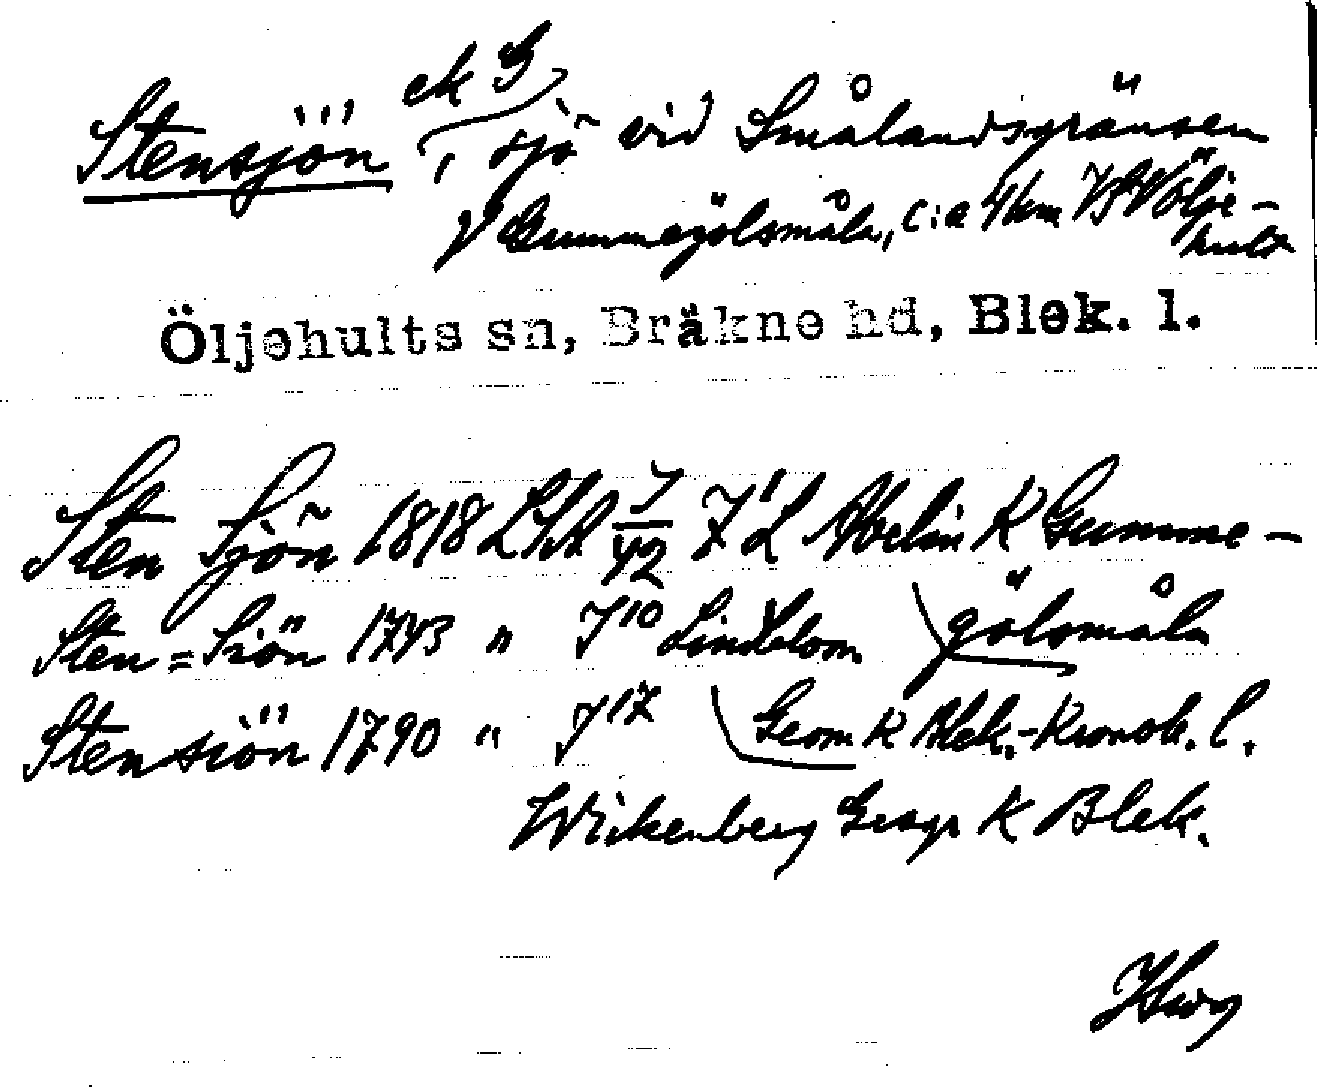 ek G
Stensjön, sjö vid Smålandsgränsen
V Gummegölsmåla, c:a 4 km VSV Ölje-
hult
Öljehults sn, Bräkne hd, Blek. l.
Sten Sjön 1818 LSA J/42 7'2 Abelin K Gumme-
Sten=Siön 1743 " J10 Lindblom gölsmåla
Stensiön 1790 " J17 Geom K Blek.-Kronob. l.
Wikenberg Geogr K Blek.